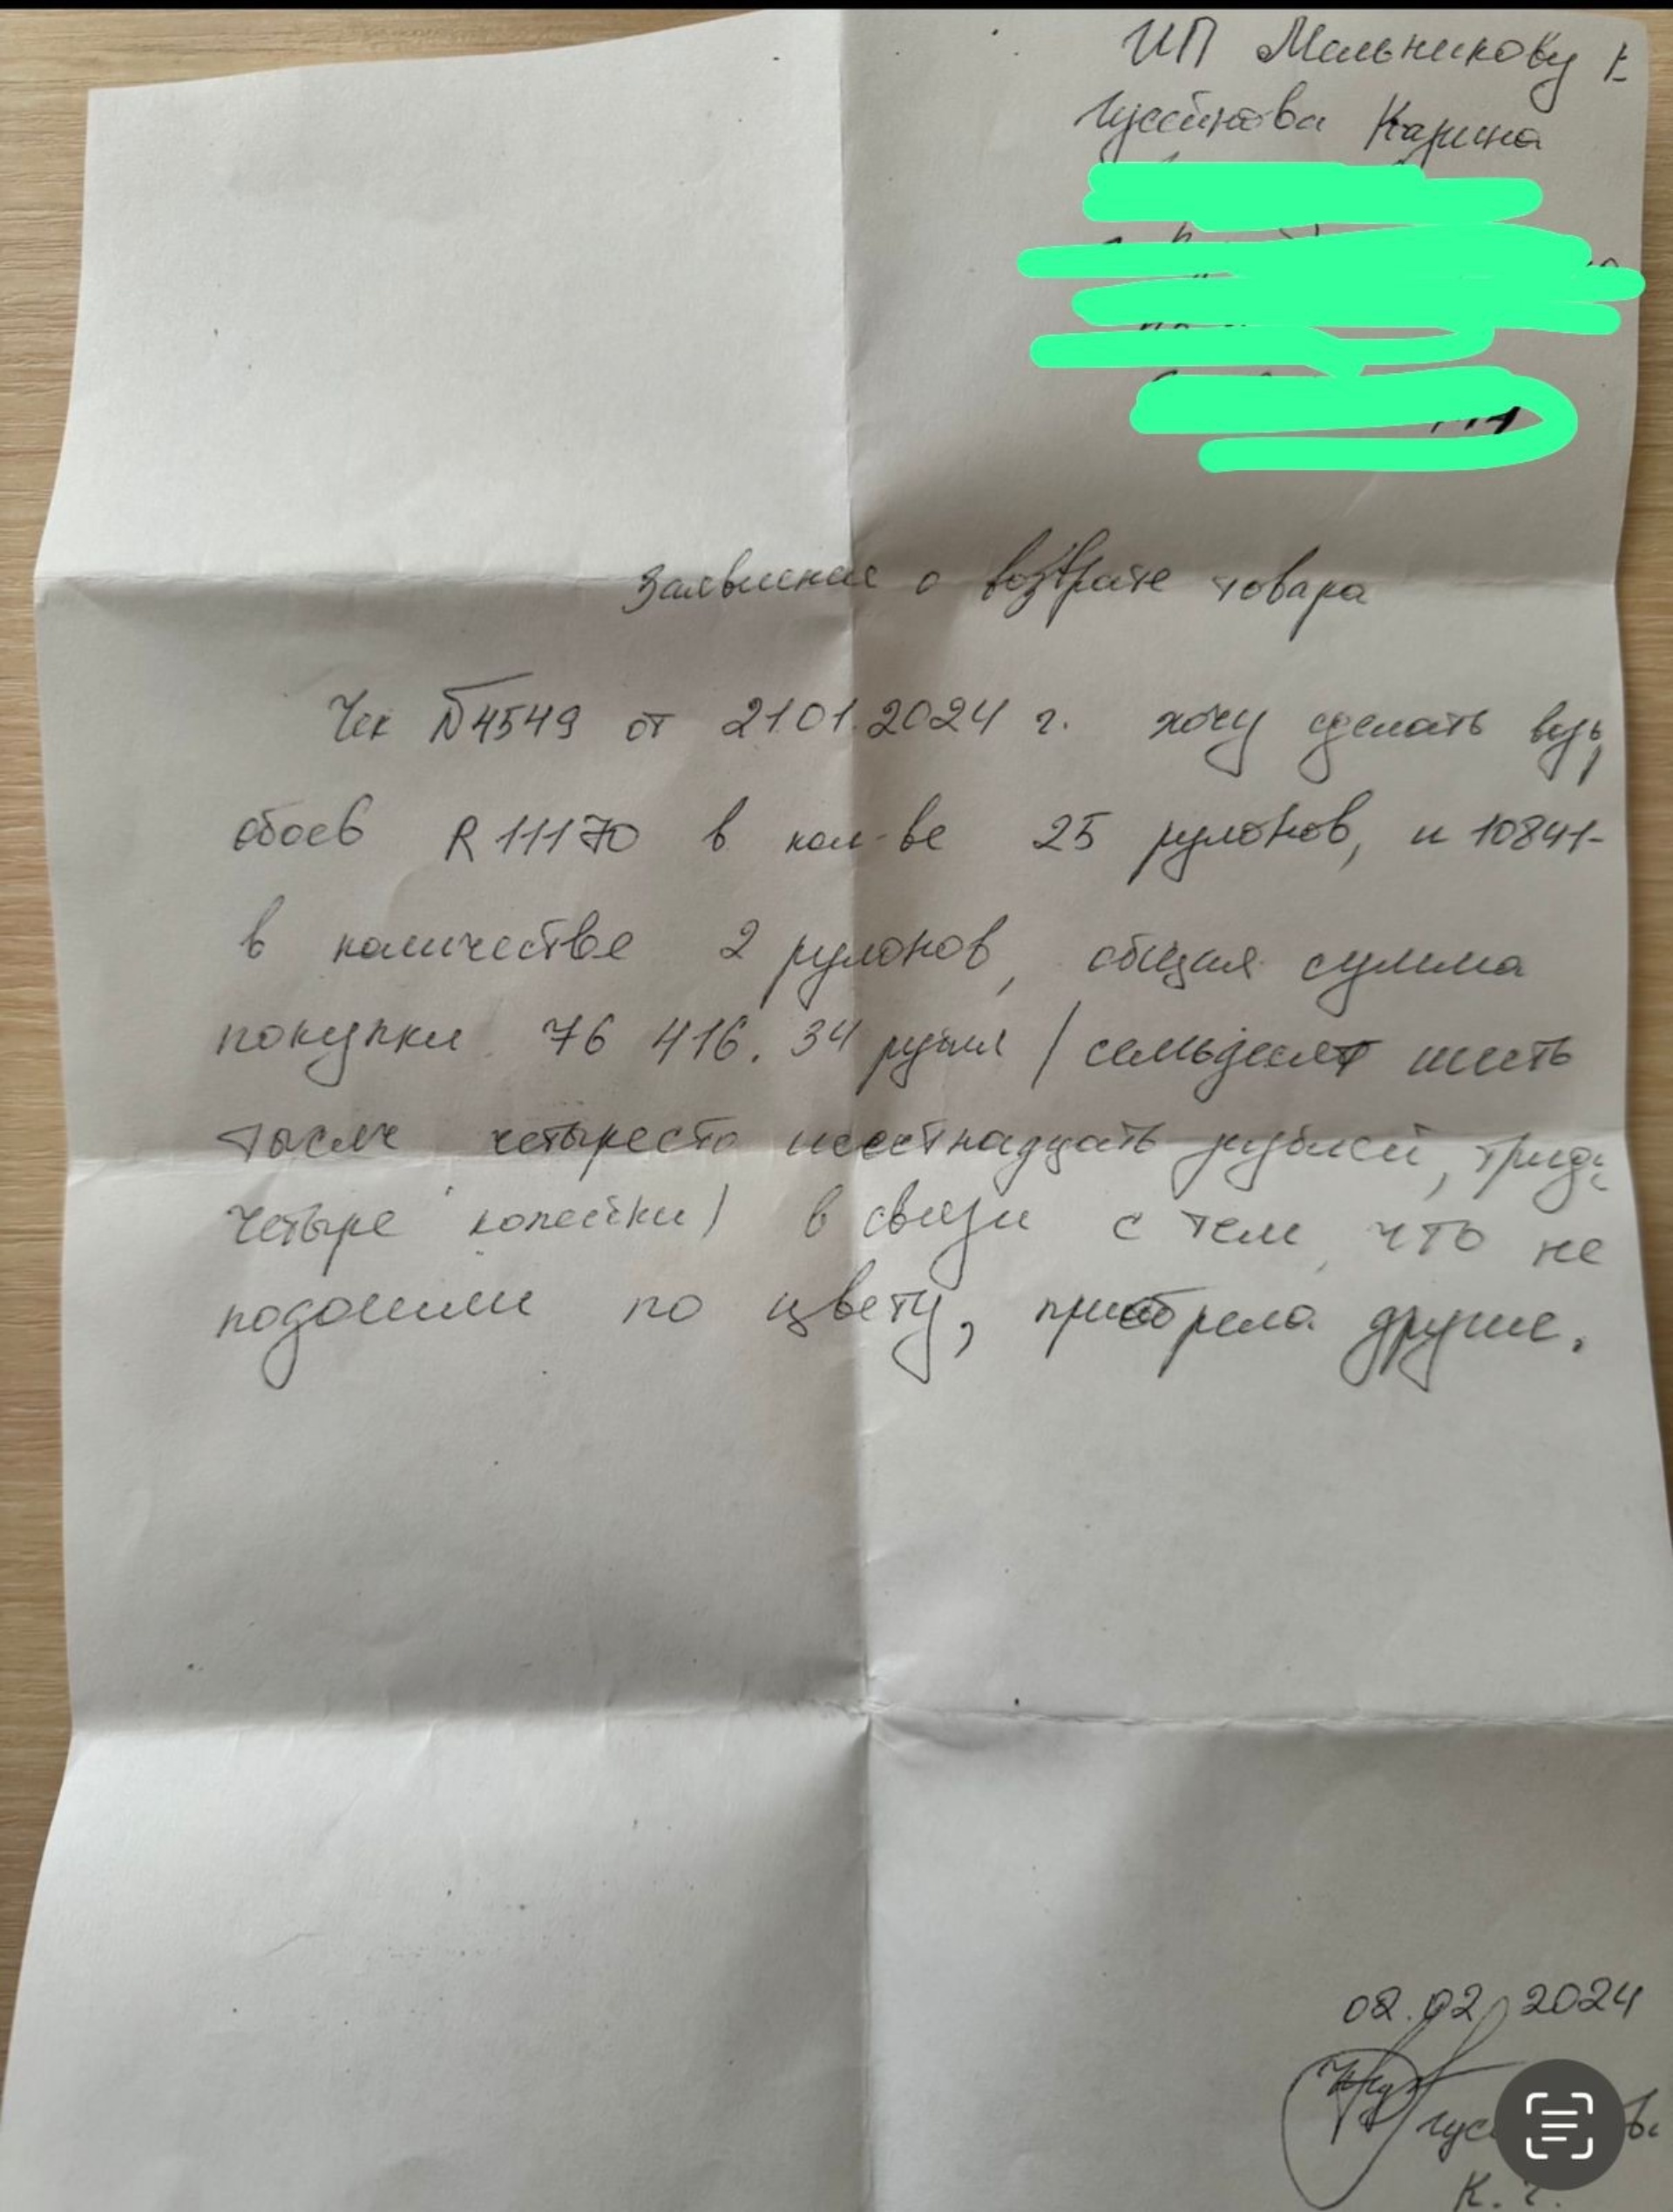 ИП Мельникову Е
Гусейнова Карина
Заявление о возврате товара
Чек №4549 от 21.01.2024 г. хочу сделать
обоев R 11170 в кол-ве 25 рулонов, и 10841-
в количестве 2 рулонов, общая сумма
покупки 76 416.34 рубля (семьдесят шесть
тысяч четыресто шестнадцать рублей,
четыре копейки) в связи с тем, что не
подошли по цвету, приобрела другие.
02.02.2024
К.